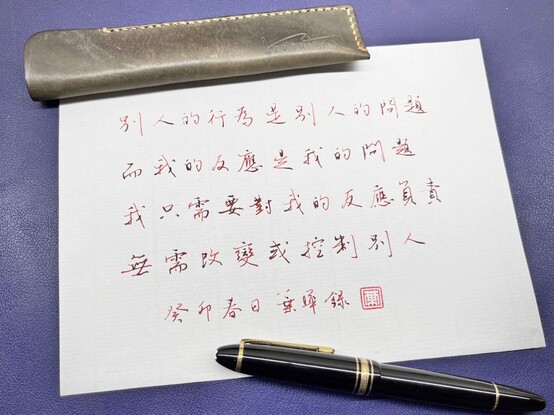 別人的行為是別人的問題
而我的反應是我的問題
我只需要對我的反應負責
無需改變或控制別人
癸卯春日葉曄錄